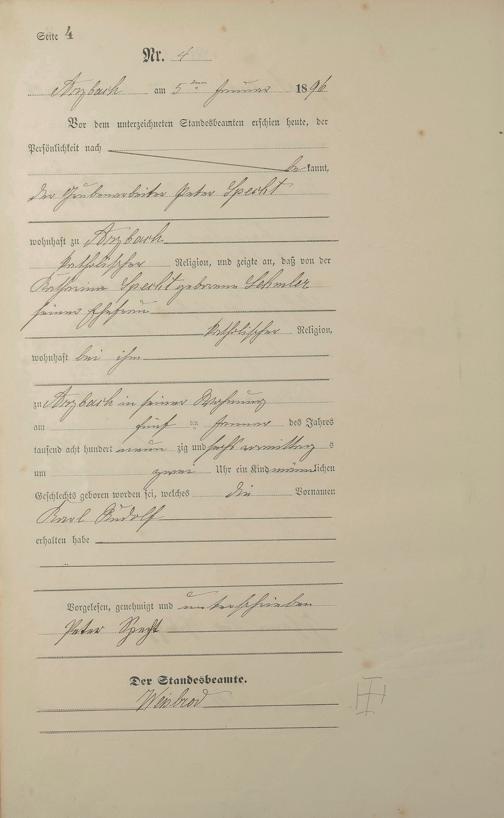 Seite 4
Nr. 4
Arzbach am 5ten Januar 1896
Vor dem unterzeichneten Standesbeamten erschien heute, der
Persönlichkeit nach
be kannt,
der Grubenarbeiter Peter Specht
wohnhaft zu Arzbach
katholischer Religion, und zeigte an, daß von der
Katharina Specht geborene
seiner Ehefrau
katholischer Religion,
wohnhaft bei ihm
zu Arzbach in seiner Wohnung
am fünf ten Januar des Jahres
tausend acht hundert neun zig und sechs vormittag s
um zwei Uhr ein Kind männlichen
Geschlechts geboren worden sei, welches die Vornamen
Karl Rudolf
erhalten habe
Vorgelesen, genehmigt und unterschrieben
Peter Specht
Der Standesbeamte.
Weisbrod